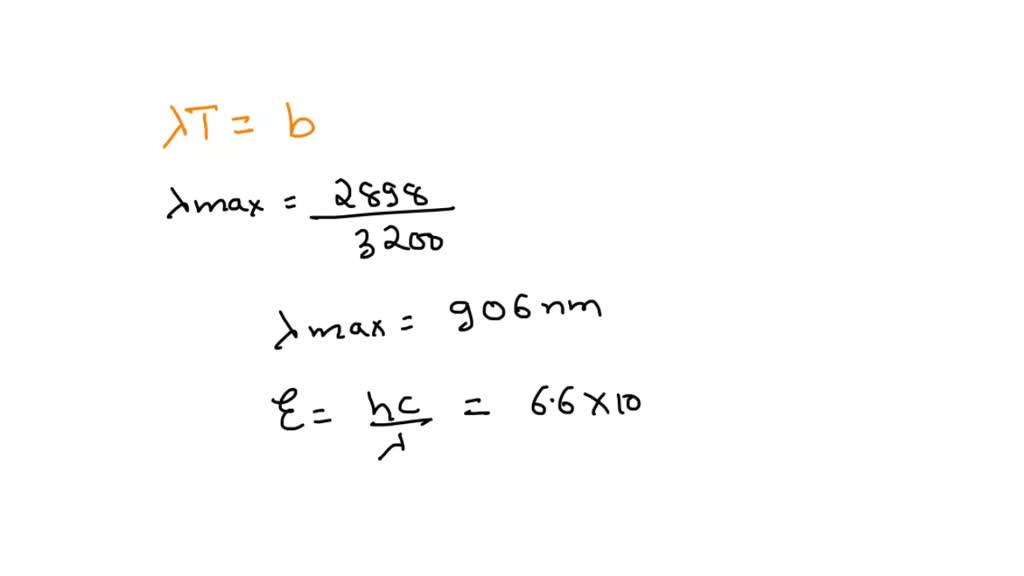 λT = b
λmax = 2898 / 3200
λmax = 906 nm
E = hc / λ = 6.6 × 10